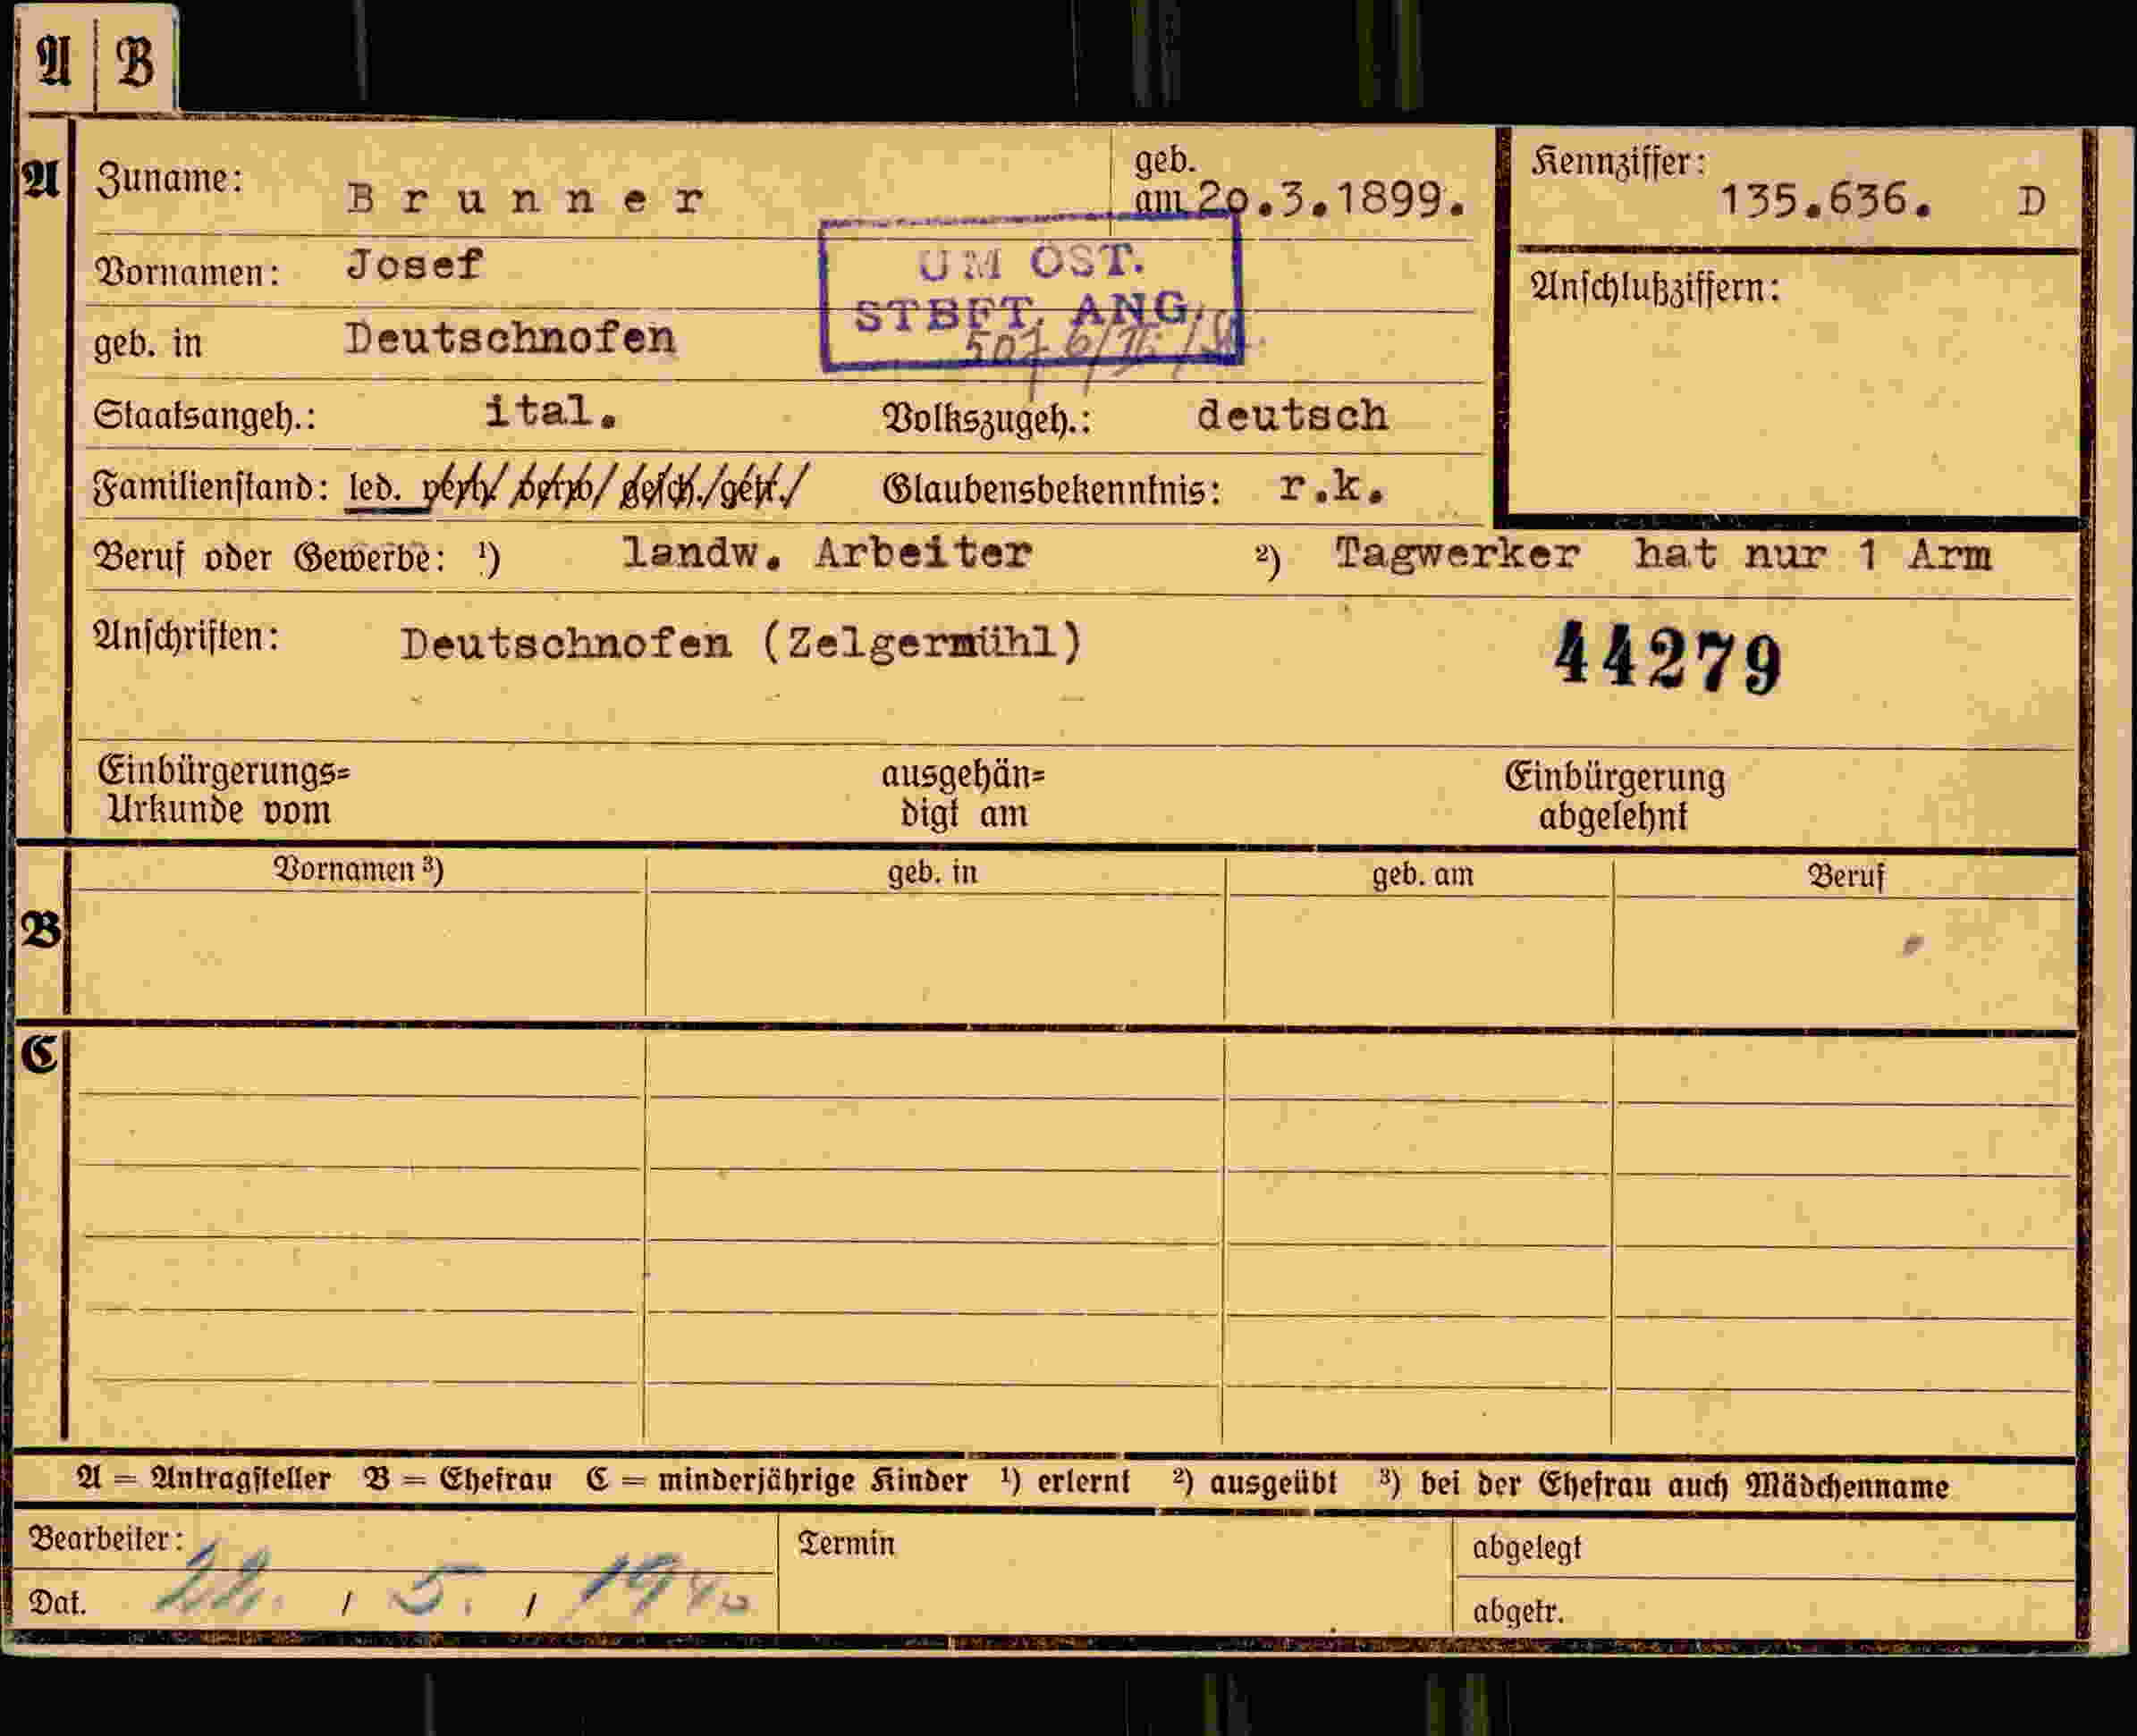 A B
A Zuname: Brunner geb. am 20.3.1899. Kennziffer: 135.636. D
Vornamen: Josef
UM OST.
STBFT. ANG.
Anschlußziffern:
geb. in Deutschnofen
Staatsangeh.: ital. Volkszugeh.: deutsch
Familienstand: led. verh/ verw/ gesch./getr./ Glaubensbekenntnis: r.k.
Beruf oder Gewerbe: ¹) landw. Arbeiter ²) Tagwerker hat nur 1 Arm
Anschriften: Deutschnofen (Zelgermühl) 44279
Einbürgerungs= ausgehän= Einbürgerung
Urkunde vom digt am abgelehnt
Vornamen ³) geb. in geb. am Beruf
B
C
A = Antragsteller B = Ehefrau C = minderjährige Kinder ¹) erlernt ²) ausgeübt ³) bei der Ehefrau auch Mädchenname
Bearbeiter: Termin abgelegt
Dat. 22. / 5. / 1940 abgetr.